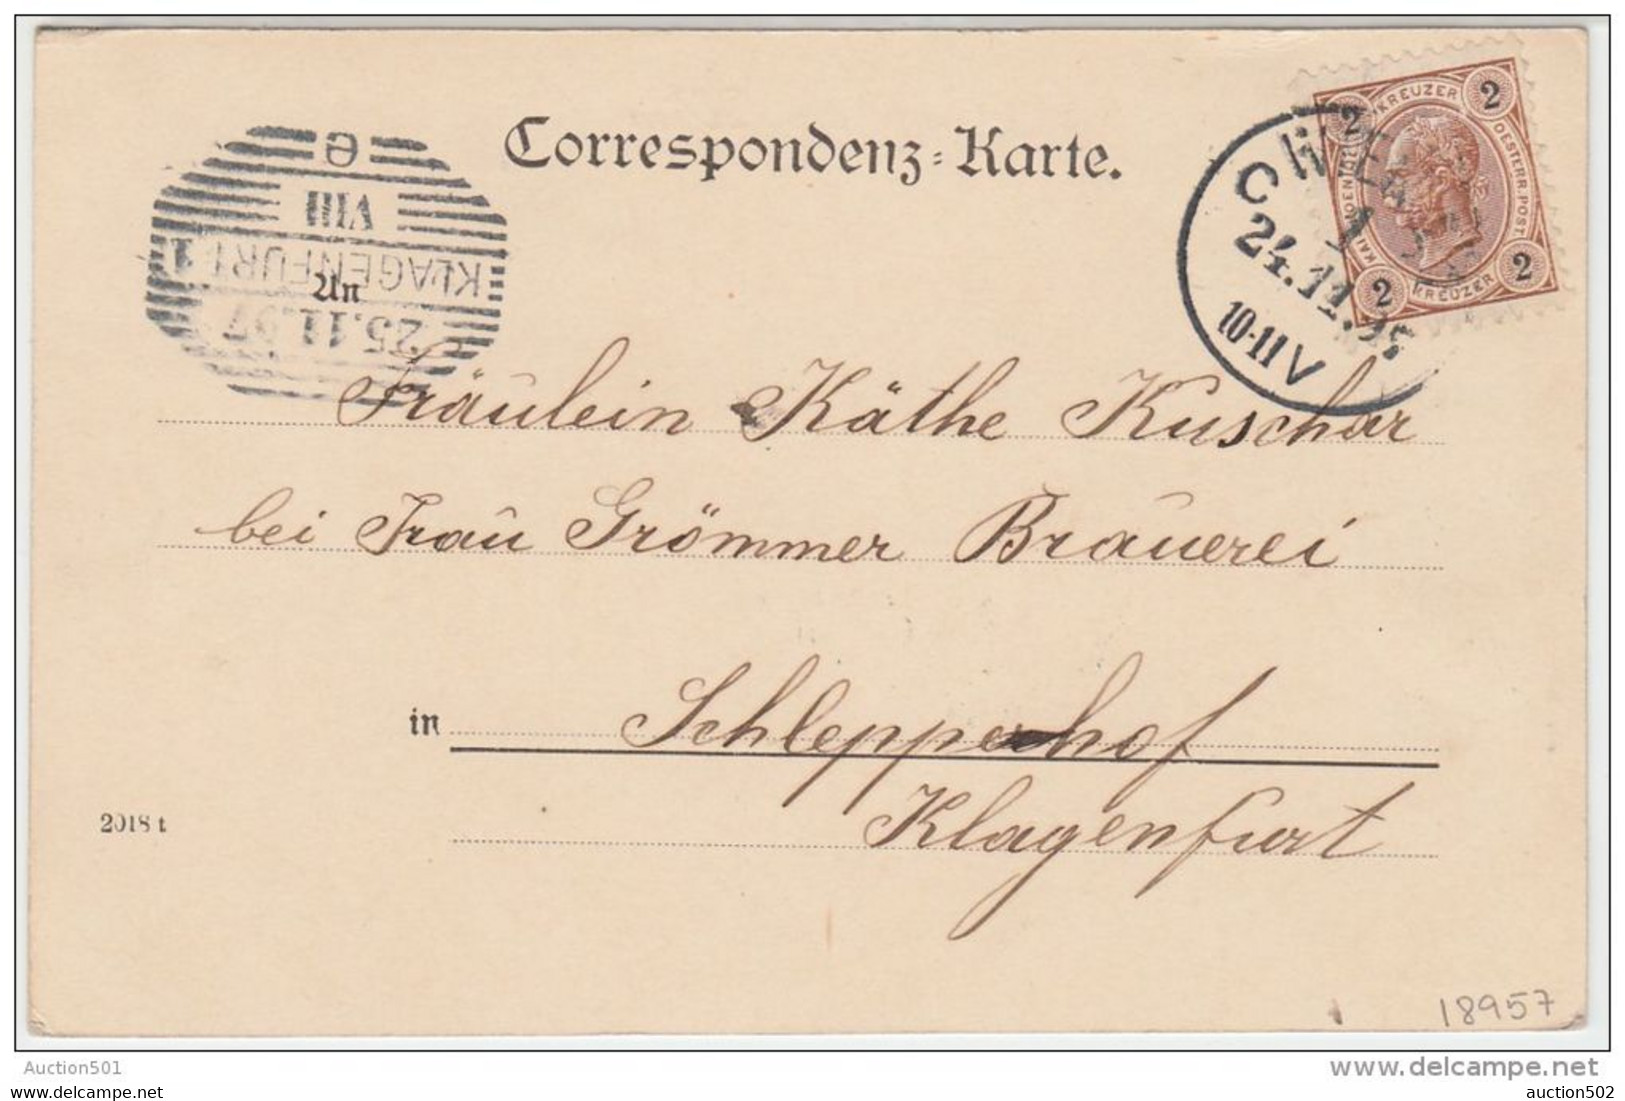 Correspondenz-Karte.
KREUZER
OESTERR. POST
KREUZER
2
2
2
2
24.11.97
10-11 V
e
VIII
KLAGENFURT 1
25.11.97
An
Fräulein Käthe Kuschar
bei Frau Grömmer Brauerei
in Schlepperhof
Klagenfurt
2018 t
18957
Auction501
delcampe.net
auction502